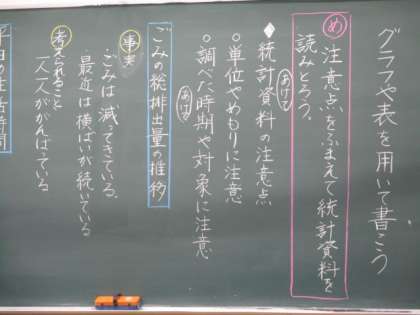 グラフや表を用いて書こう
め 注意点をふまえて統計資料を
読みとろう。
あげて
◆統計資料の注意点
○単位やめもりに注意
○調べた時期や対象に注意
あげる
ごみの総排出量の推移
事実
・ごみは減ってきている。
・最近は横ばいが続いている
考えられること
一人一人ががんばっている
平日の生活時間